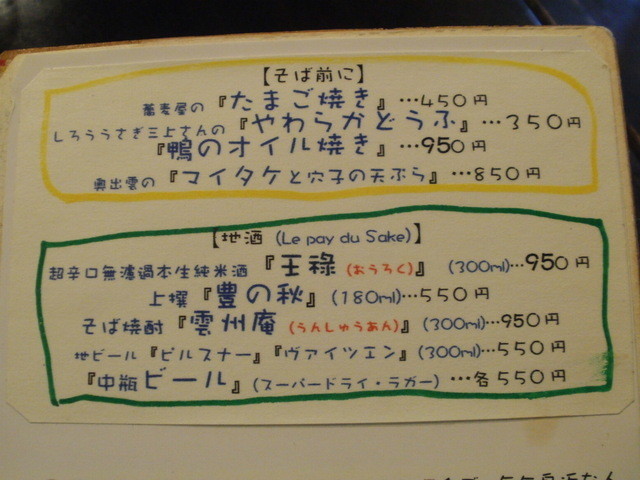 【そば前に】
蕎麦屋の『たまご焼き』…450円
しろううさぎ三上さんの『やわらかどうふ』…350円
『鴨のオイル焼き』…950円
奥出雲の『マイタケと穴子の天ぷら』…850円
【地酒 (Le pay du Sake)】
超辛口無濾過本生純米酒『王祿(おうろく)』(300ml)…950円
上撰『豊の秋』(180ml)…550円
そば焼酎『雲州庵(うんしゅうあん)』(300ml)…950円
地ビール『ピルスナー』『ヴァイツェン』(300ml)…550円
『中瓶ビール』(スーパードライ・ラガー)…各550円